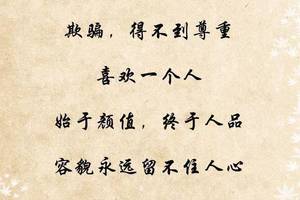 欺骗，得不到尊重
喜欢一个人
始于颜值，终于人品
容貌永远留不住人心